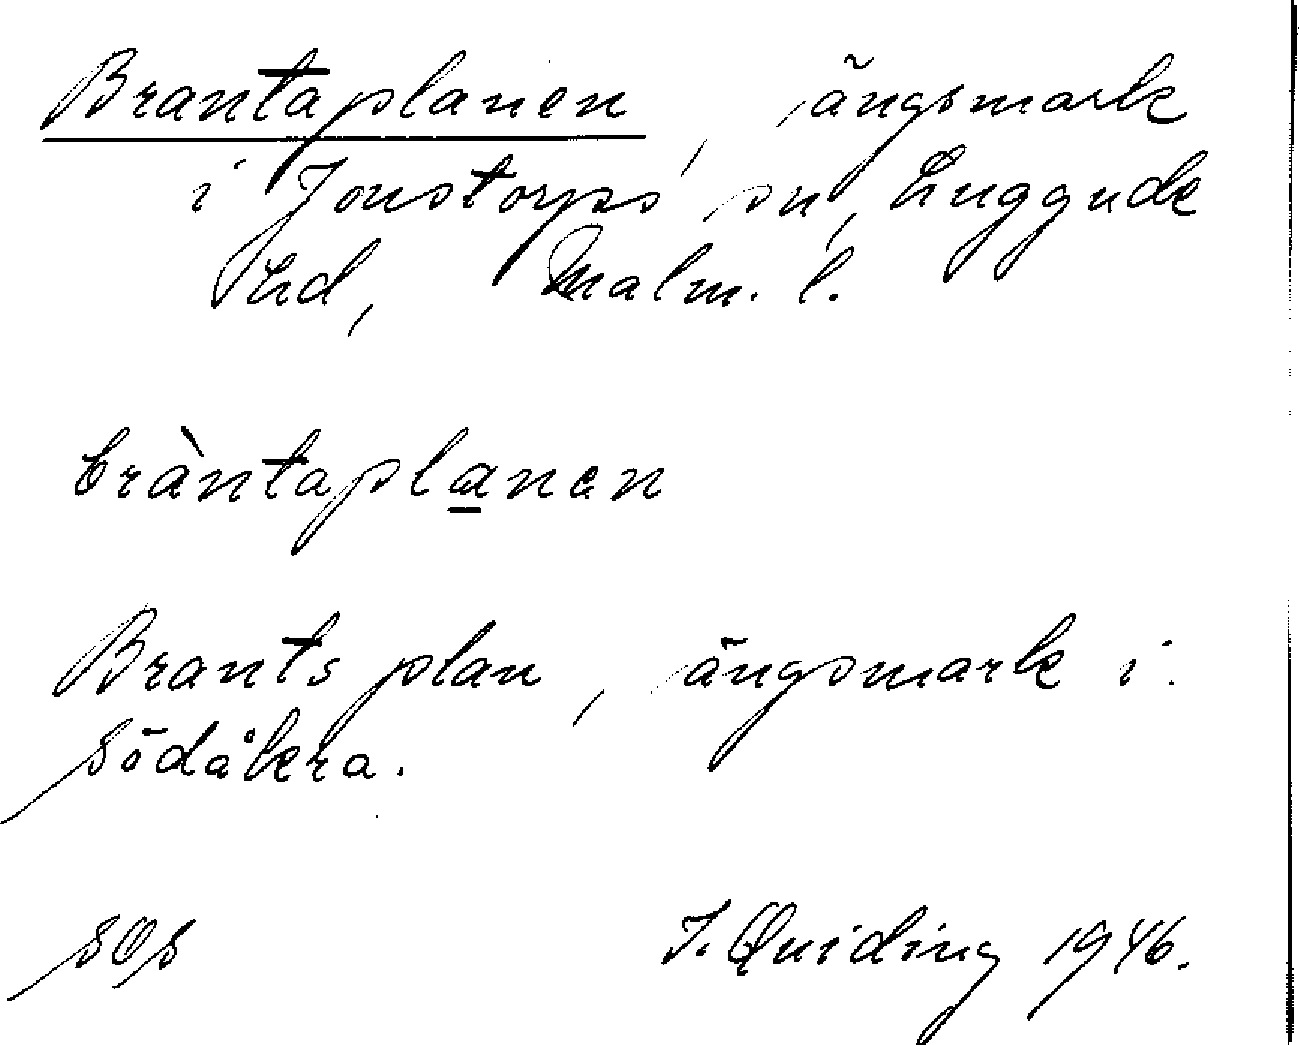 Brantaplanen, ängsmark
i Jonstorps sn, Luggude
hd, Malm. l.
bràntaplanen
Brants plan, ängsmark i
Södåkra.
SOS J. Quiding 1946.